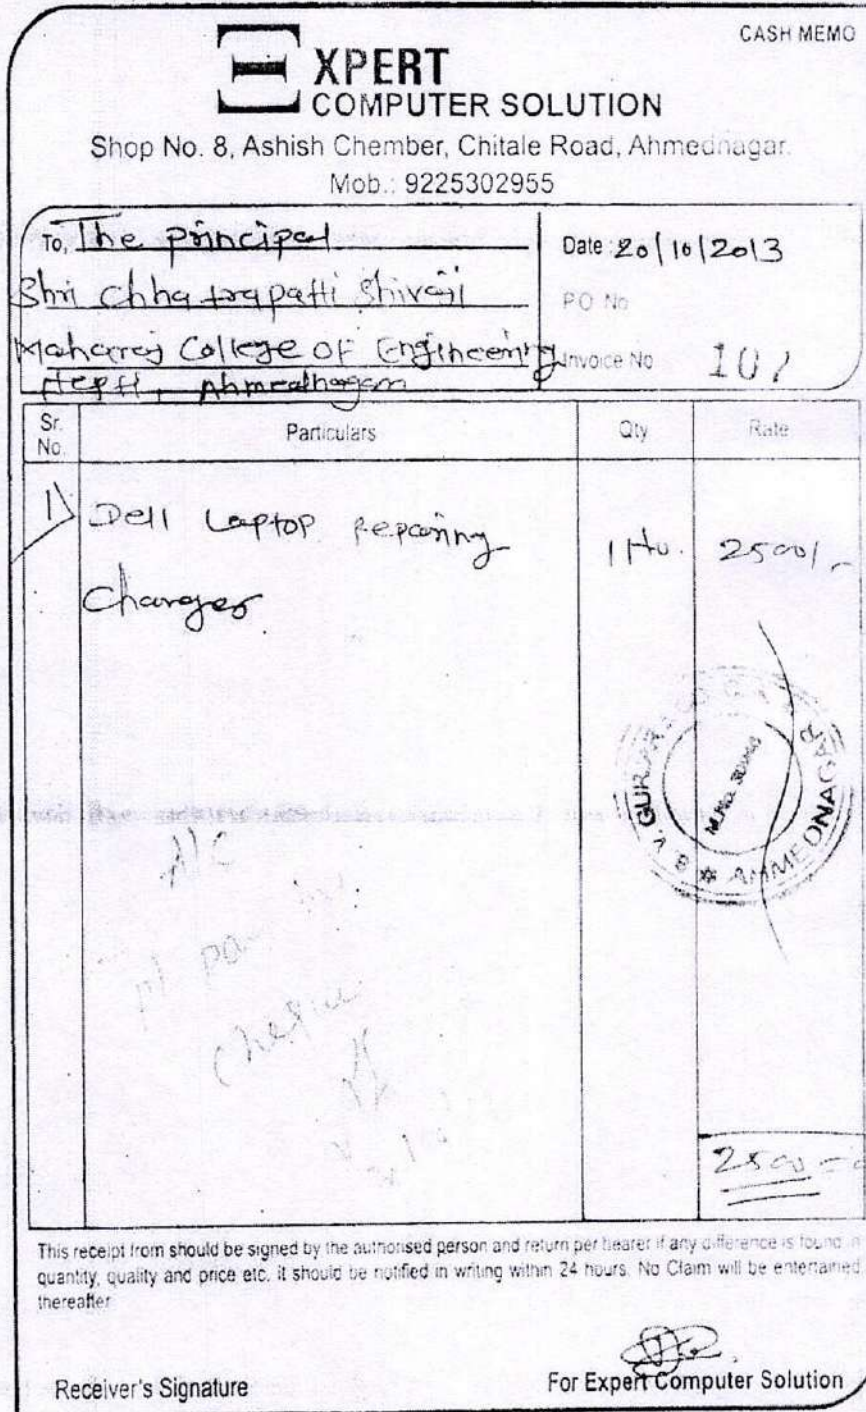 CASH MEMO
EXPERT
COMPUTER SOLUTION
Shop No. 8, Ashish Chember, Chitale Road, Ahmednagar.
Mob.: 9225302955
To, The principal
Shri Chhatrapatti Shivaji
Maharaj College of Engineering
Nepti, Ahmednagar
Date : 20/10/2013
P.O No
Invoice No 107
Sr. No. Particulars Qty Rate
1) Dell Laptop Repairing 1 No. 2500/-
Charges
S. V. GUR
AHMEDNAGAR
M.No.
A/C
pl pay
cheque
2500=00
This receipt from should be signed by the authorised person and return per bearer if any difference is found in
quantity, quality and price etc. it should be notified in writing within 24 hours. No Claim will be entertained
thereafter
Receiver's Signature
For Expert Computer Solution